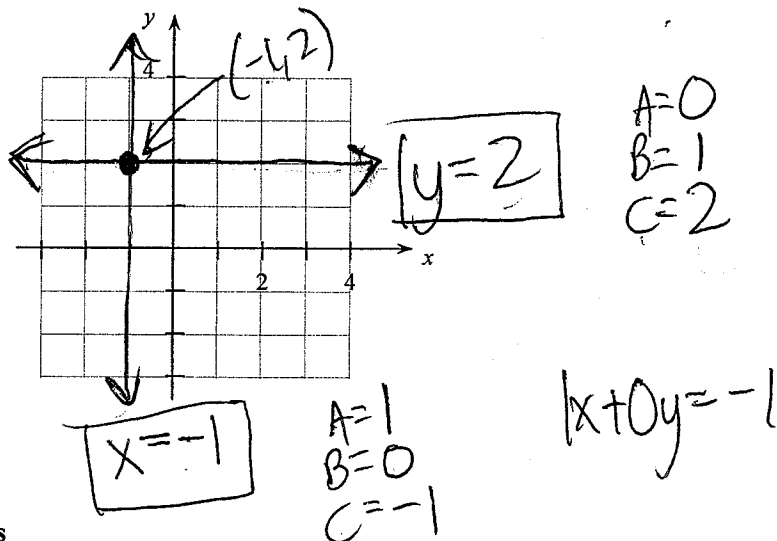 y
4
(-1,2)
A=0
B=1
C=2
1y=2
x
2
4
x=-1
A=1
B=0
C=-1
1x+0y=-1
s